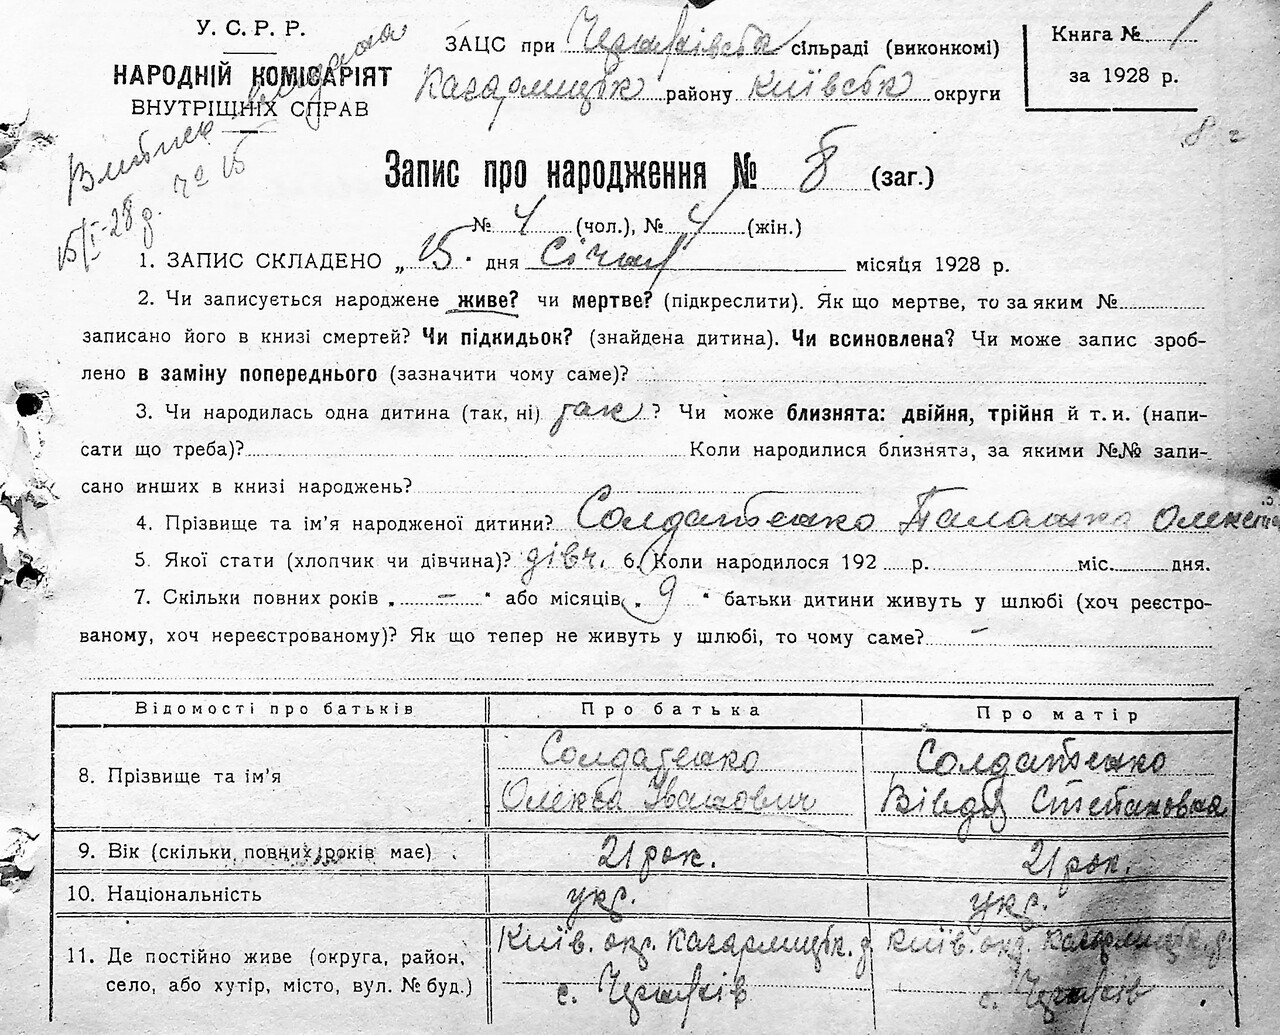 У. С. Р. Р.
НАРОДНІЙ КОМІСАРІЯТ
ВНУТРІШНІХ СПРАВ
Витяг видана
15/I-28 д. № 15
ЗАЦС при сільраді (виконкомі)
Кагарлицьк району Київськ округи
Книга № 1
за 1928 р.
Запис про народження № 8 (заг.)
№ 4 (чол.), № 4 (жін.)
1. ЗАПИС СКЛАДЕНО „15" дня Січня місяця 1928 р.
2. Чи записується народжене живе? чи мертве? (підкреслити). Як що мертве, то за яким №
записано його в книзі смертей? Чи підкидьок? (знайдена дитина). Чи всиновлена? Чи може запис зроб-
лено в заміну попереднього (зазначити чому саме)?
3. Чи народилась одна дитина (так, ні) так? Чи може близнята: двійня, трійня й т. и. (напи-
сати що треба)? Коли народилися близнята, за якими №№ запи-
сано инших в книзі народжень?
4. Прізвище та ім'я народженої дитини? Солдатенко
5. Якої стати (хлопчик чи дівчина)? дівч. 6. Коли народилося 192 р. міс. дня.
7. Скільки повних років „ – " або місяців „ 9 " батьки дитини живуть у шлюбі (хоч реєстро-
ваному, хоч нереєстрованому)? Як що тепер не живуть у шлюбі, то чому саме? –
Відомості про батьків Про батька Про матір
8. Прізвище та ім'я Солдатенко Олекса Іванович Солдатенко Степановна
9. Вік (скільки повних років має) 21 рок. 21 рок.
10. Національність укр. укр.
11. Де постійно живе (округа, район, Київ. окр. Кагарлицьк. р. Київ. окр. Кагарлицьк. р.
село, або хутір, місто, вул. № буд.) с. с.